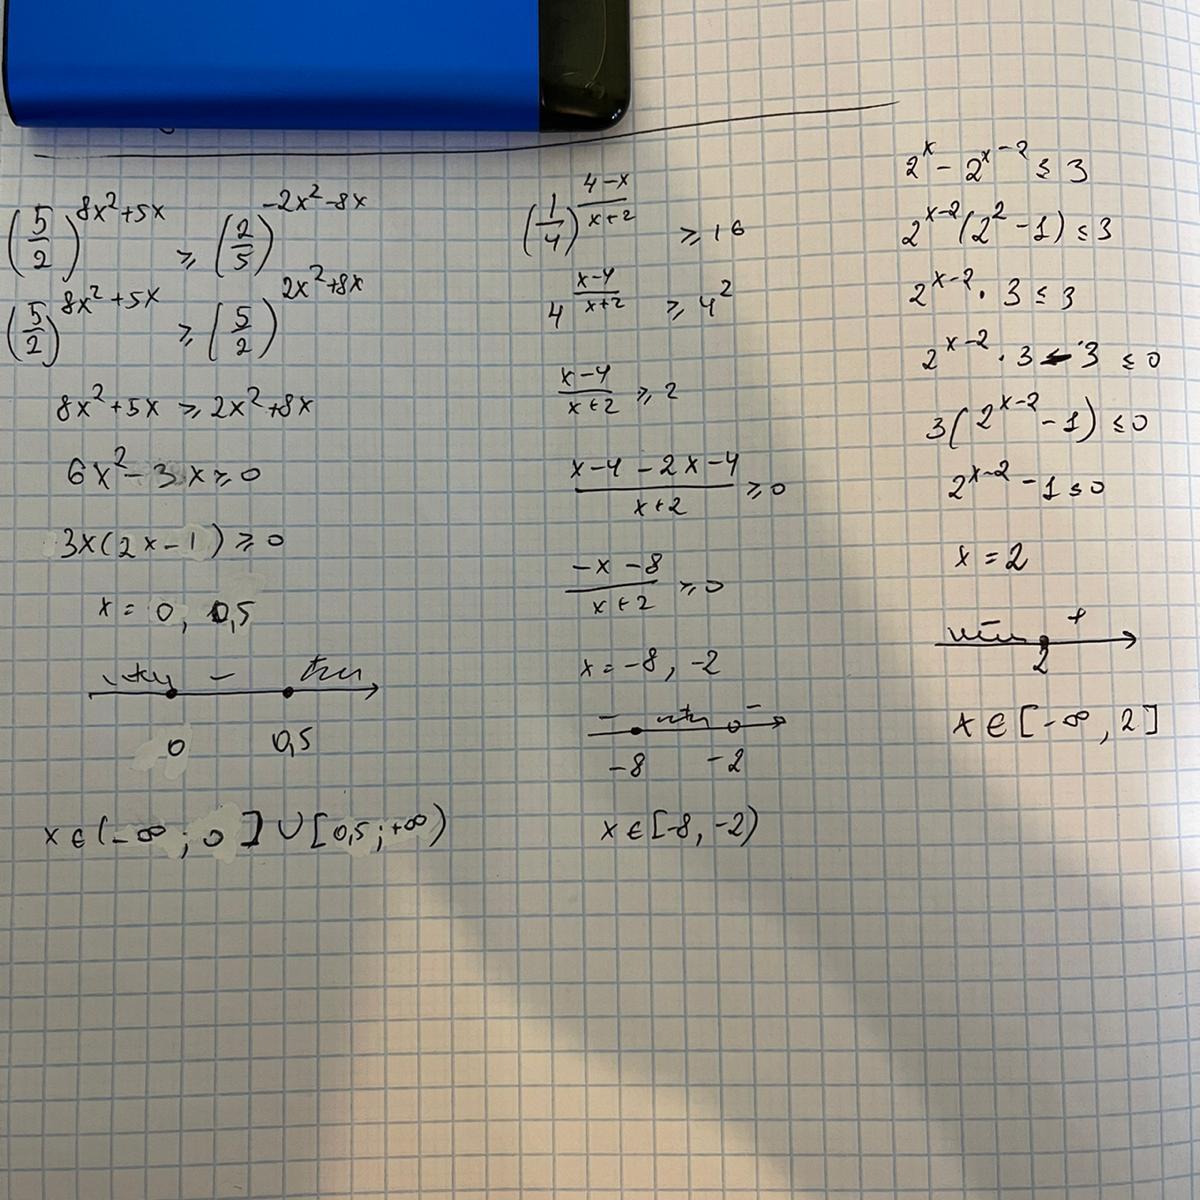 (5/2)^(8x²+5x) ≥ (2/5)^(-2x²-8x)
(5/2)^(8x²+5x) ≥ (5/2)^(2x²+8x)
8x²+5x ≥ 2x²+8x
6x²-3x ≥ 0
3x(2x-1) ≥ 0
x = 0, 0,5
+ - +
0 0,5
x ∈ (-∞; 0] ∪ [0,5; +∞)
(1/4)^((4-x)/(x+2)) ≥ 16
4^((x-4)/(x+2)) ≥ 4²
(x-4)/(x+2) ≥ 2
(x-4-2x-4)/(x+2) ≥ 0
(-x-8)/(x+2) ≥ 0
x = -8, -2
- + -
-8 -2
x ∈ [-8, -2)
2^x - 2^(x-2) ≤ 3
2^(x-2)(2²-1) ≤ 3
2^(x-2) · 3 ≤ 3
2^(x-2) · 3 - 3 ≤ 0
3(2^(x-2) - 1) ≤ 0
2^(x-2) - 1 ≤ 0
x = 2
- +
2
x ∈ [-∞, 2]